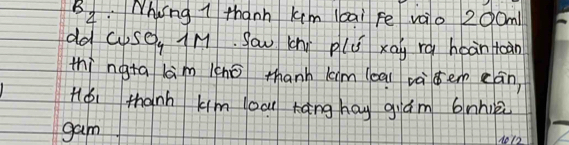 B2: Nhúng 1 thanh kim loại Fe vào 200ml
dd CuSO4 1M. Sau khi pứ xảy ra hoàn toàn
thì ngta làm khô thanh kim loại và đem cân,
Hỏi thanh kim loại tăng hay giảm bnhiê
gam
10/2